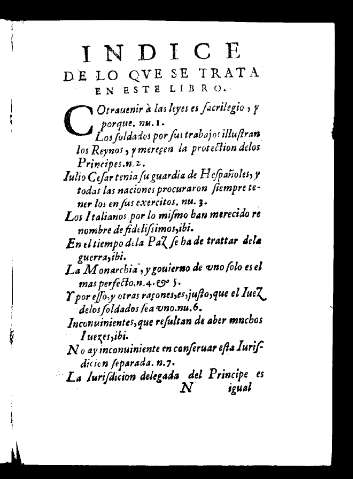 INDICE
DE LO QVE SE TRATA
EN ESTE LIBRO.
COtrauenir à las leyes es sacrilegio, y
porque. nu. 1.
Los soldados por sus trabajos illustran
los Reynos, y mereçen la protection delos
Principes. n. 2.
Iulio Cesar tenia su guardia de Hespañoles, y
todas las naciones procuraron siempre te-
ner los en sus exercitos. nu. 3.
Los Italianos por lo mismo han merecido re
nombre de fidelissimos, ibi.
En el tiempo dela Paz se ha de trattar dela
guerra, ibi.
La Monarchia, y gouierno de vno solo es el
mas perfecto. n. 4. & 5.
Y por esso, y otras razones, es, justo, que el Iuez
de los soldados sea vno. nu. 6.
Inconuinientes, que resultan de aber mnchos
Iuezes, ibi.
No ay inconuiniente en conseruar esta Iuris-
dicion separada. n. 7.
La Iurisdicion delegada del Principe es
N igual